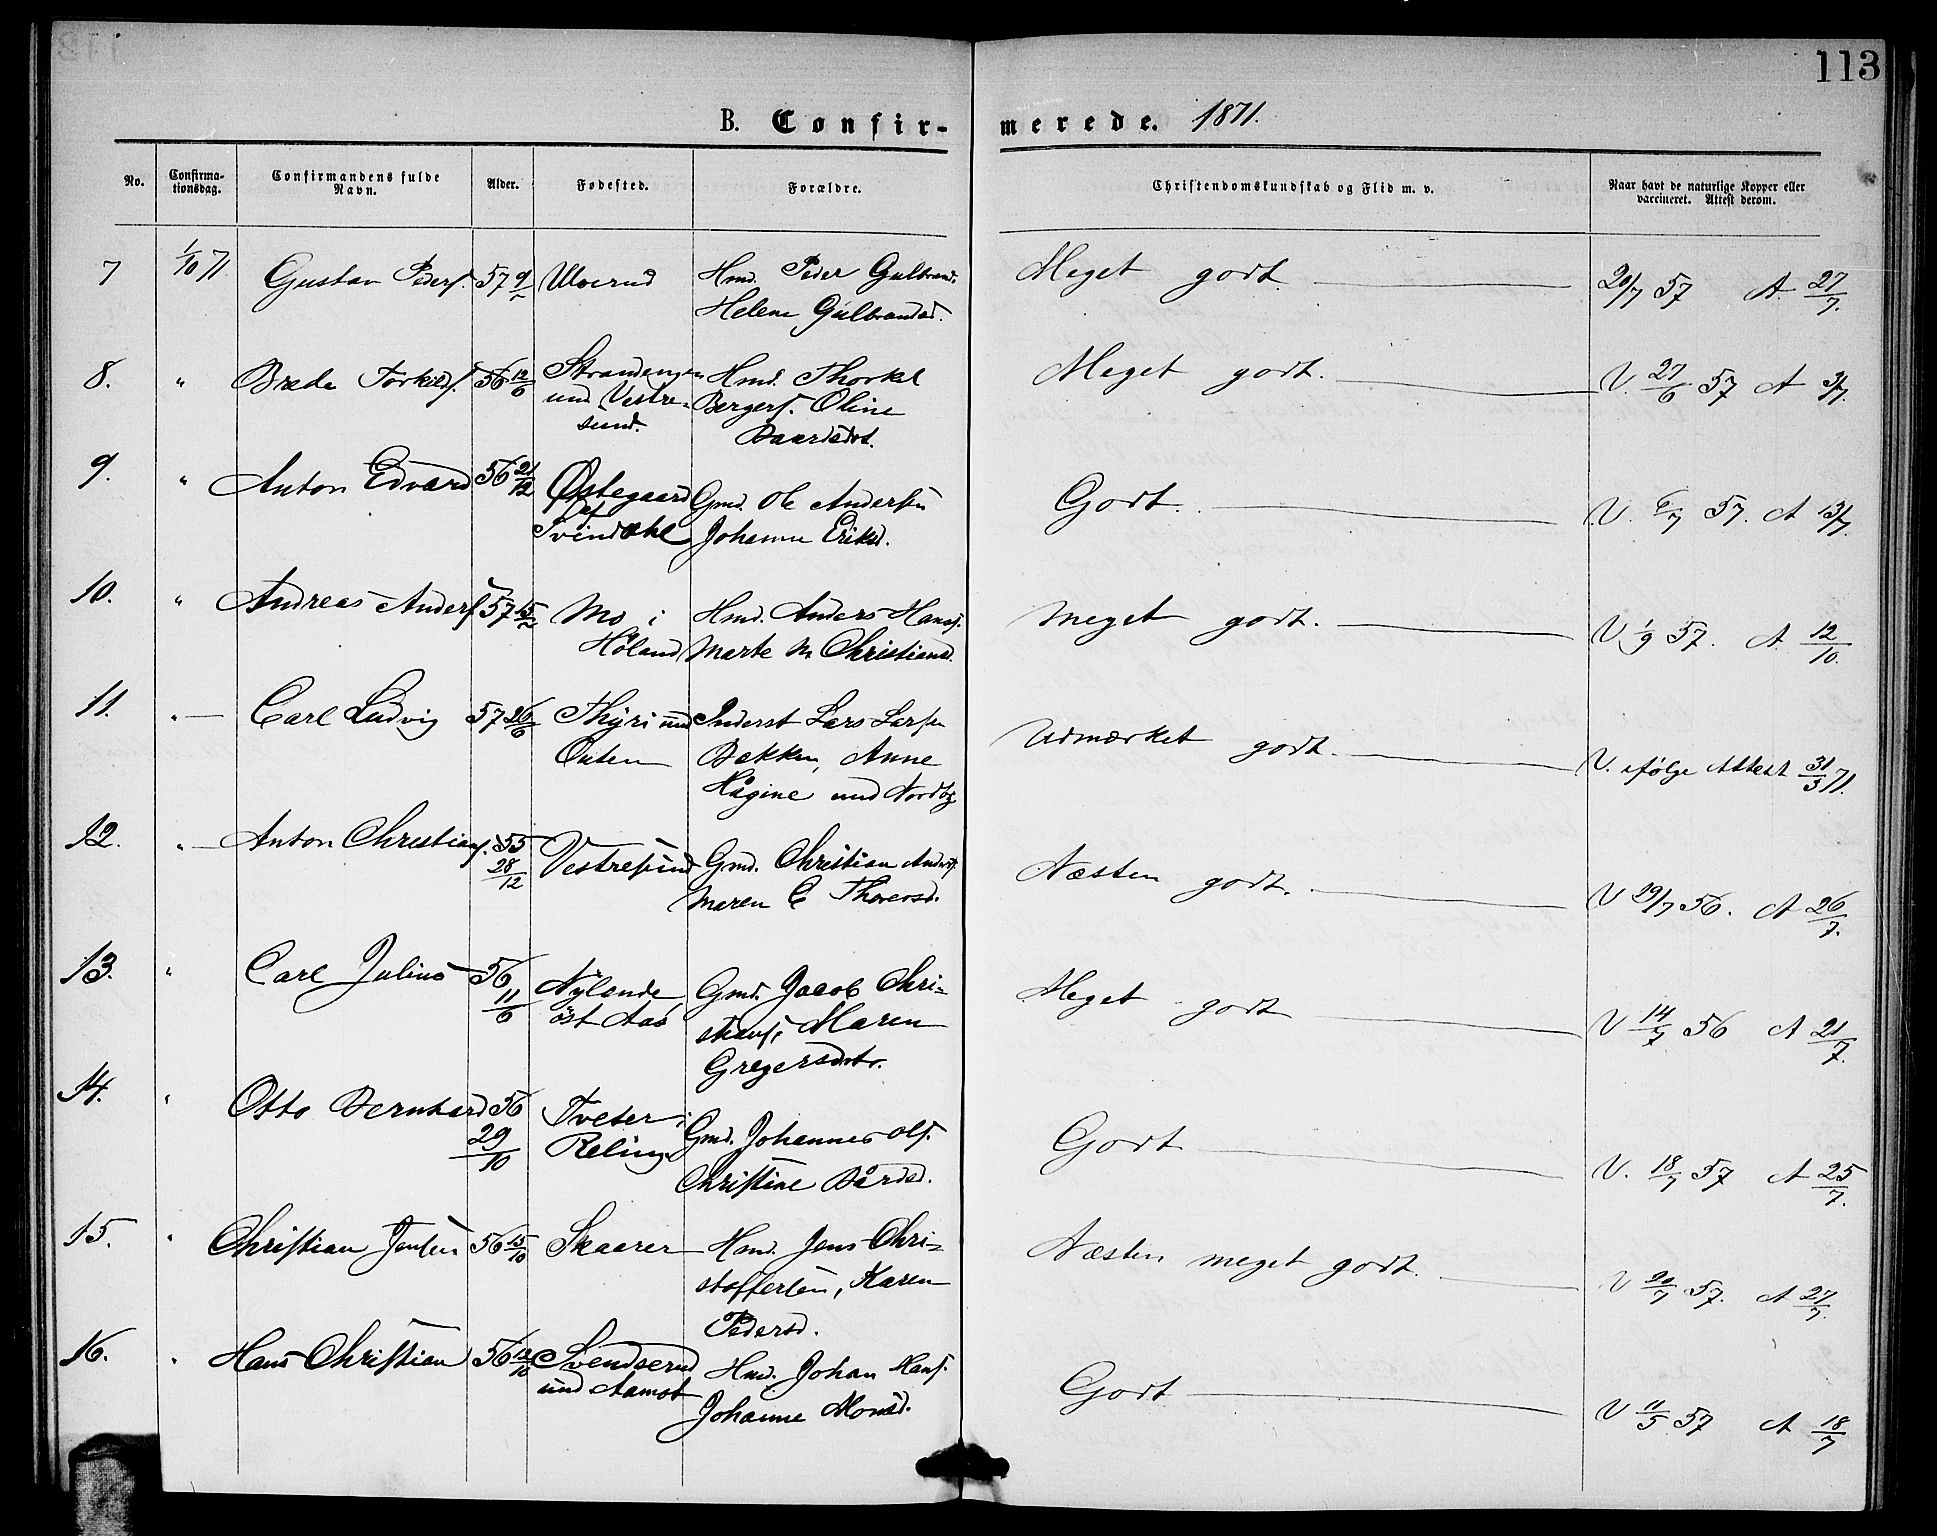 113
B. Confir-merede. 1871.
No. Confirma-tionsdag. Confirmandens fulde Navn. Alder. Fødested. Forældre. Christendomskundskab og Flid m. v. Naar havt de naturlige Kopper eller vaccineret. Attest derom.
7 1/10 71. Gustav Peders. 57 Ulverud Hmd. Peder Gulbrands. Meget godt. 20/7 57 A. 27/7.
Helene Gulbrandsd.
8. " Brede Torkilds. 56 12/6 Strandengen Hmd. Thorkel Meget godt. V. 27/6 57 A 3/7.
und Vestre- Bergers. Oline
sund. Baardsdt.
9. " Anton Edvard 56 21/12 Østegaard Gmd. Ole Andersen Godt. V. 6/7 57. A 13/7.
af Johanne Eriksd.
Svindahl
10. " Andreas Anders. 57 Mo i Hmd. Anders Hans. Meget godt. V 1/9 57. A. 12/10.
Høland Marte M Christiansd.
11. " Carl Ludvig 57 26/6 Thyri und Inderst Lars Larsen Udmærket godt. V. ifølge Attest 31/3 71.
Outen Bekken, Anne
Hågine und Nordby
12. " Anton Christians. 55 28/12 Vestresund Gmd. Christian Anders. Næsten godt. V 19/7 56. A 26/7.
Maren C Thoresd.
13. " Carl Julius 56 11/6 Nylende Gmd. Jacob Chri- Meget godt V 14/7 56 A 21/7.
øst Aas stians. Maren
Gregersdtr.
14. " Otto Bernhard 56 29/10 Tveter i Gmd. Johannes Ols. Godt V. 18/7 57 A 25/7.
Reling Christine Bårdsd.
15. " Christian Jensen 56 15/10 Skaarer Hmd. Jens Chri- Næsten meget godt. V 20/7 57. A 27/7.
stoffersen, Karen
Pedersd.
16. " Hans Christian 56 12/10 Svendserud Hmd. Johan Hans. Godt V 11/5 57 A 18/7
und Aamot Johanne Monsd.